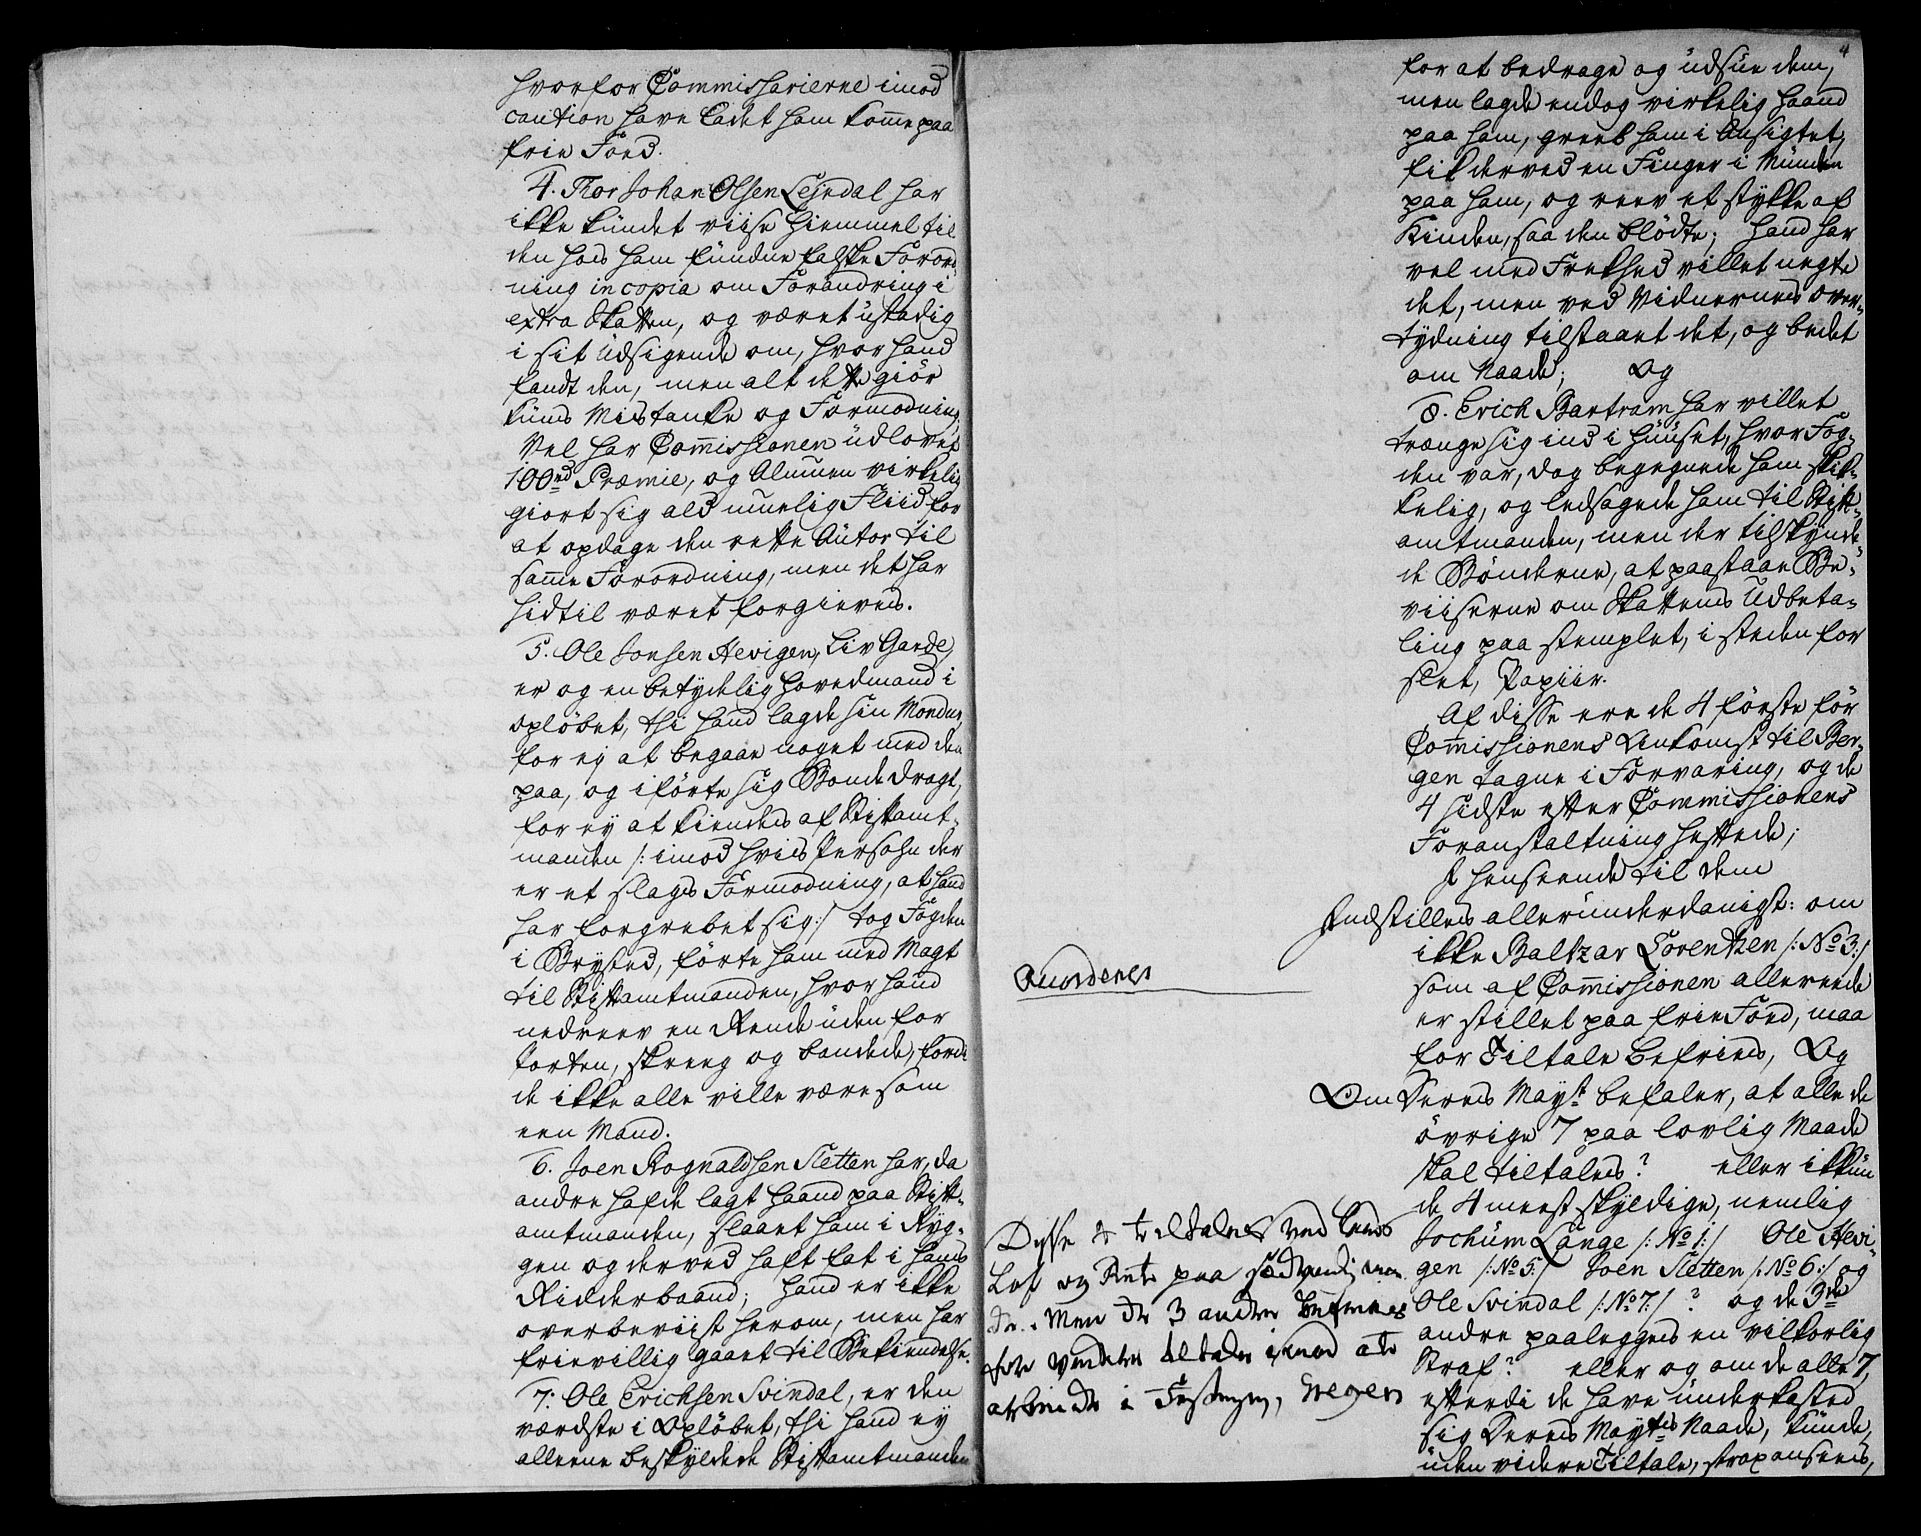 hvorfor Commissarierne imod
caution have ladet ham komme paa
frie Foed.
4. Thor Johan Olsen Lejrdal har
ikke kundet viise Hiemmel til
den hos ham fundne falske Forord-
ning in copia om Forandring i
extra Skatten, og været ustadig
i sit Udsigende om, hvor hand
fandt den, men alt dette giør
kuns Mistanke og Formodning.
Vel har Commissionen udlovet
100 rd Præmie, og Almuen virkelig
giort sig ald muelig Fliid for
at opdage den rette Autor til
samme Forordning, men det har
hidtil været forgieves.
5. Ole Jonsen Hevigen, Liv Garde,
er og en betydelig Hovedmand i
opløbet, thi hand lagde sin Mondur,
for ej at begaae noget med den
paa, og iførte sig Bonde dragt,
for ej at kiendes af Stiftamt-
manden /: imod hvis Persohn der
er et slags Formodning, at hand
har forgrebet sig :/ tog Fogden
i Brysted, førte ham med Magt
til Stiftamtmanden, hvor hand
nedreev en Rende uden for
Porten, skreeg og bandede, fordi
de ikke alle ville være som
een Mand.
6. Joen Rognaldsen Sletten har, da
andre hafde lagt Haand paa Stift-
amtmanden, slaaet ham i Ryg-
gen og derved haft fat i hans
Ridderbaand; hand er ikke
overbeviist herom, men har
frievillig gaaet til Bekiendelse.
7. Ole Erichsen Svindal, er den
værdste i Opløbet, thi hand ej
alleene beskyldede Stiftamtmanden
4
for at bedrage og udsue dem,
men lagde endog virkelig Haand
paa ham, greeb ham i Ansigtet,
fik derved en Finger i Munden
paa ham, og reev et stykke af
Kinden, saa den blødte; hand har
vel med Frekhed villet negte
det, men ved Vidnernes over-
tydning tilstaaet det, og bedet
om Naade; og
8. Erich Bartram har villet
trænge sig ind i Huuset, hvor Fog-
den var, dog begegnede ham skik-
kelig, og ledsagede ham til Stift-
amtmanden, men der tilskynde-
de Bønderne, at paastaae Be-
viiserne om Skattens Udbeta-
ling paa stemplet, i steden for
slet, Papiir.
Af disse ere de 4 første før
Commissionens Ankomst til Ber-
gen tagne i Forvaring, og de
4 sidste efter Commissionens
Foranstaltning heftede;
I henseende til dem
Indstilles allerunderdanigst: om
ikke Baltzar Lorentzen /: No 3 :/
som af Commissionen allereede
er stillet paa frie Foed, maa
for Tiltale befries, Og
Om Deres Mayst befaler, at alle de
øvrige 7 paa lovlig Maade
skal tiltales? eller ikkun
de 4 meest skyldige, nemlig
Jochum Lange /: No 1 :/ Ole Hevi-
gen /: No 5 :/ Joen Sletten /: No 6 :/ og
Ole Svindal /: No 7 :/ ? og de 3de
andre paalegges en vilkorlig
Straf? eller og om de alle 7,
efterdi de have underkasted
sig Deres Maytes Naade, kunde,
uden videre Tiltale, strax ansees,
Qvordenes
Disse 4 tiltales ved Lands
Lov og Ret paa sædvanlig maa
de. Men de 3 andre
fri videre tiltale imod at
arbeide i Festningen,